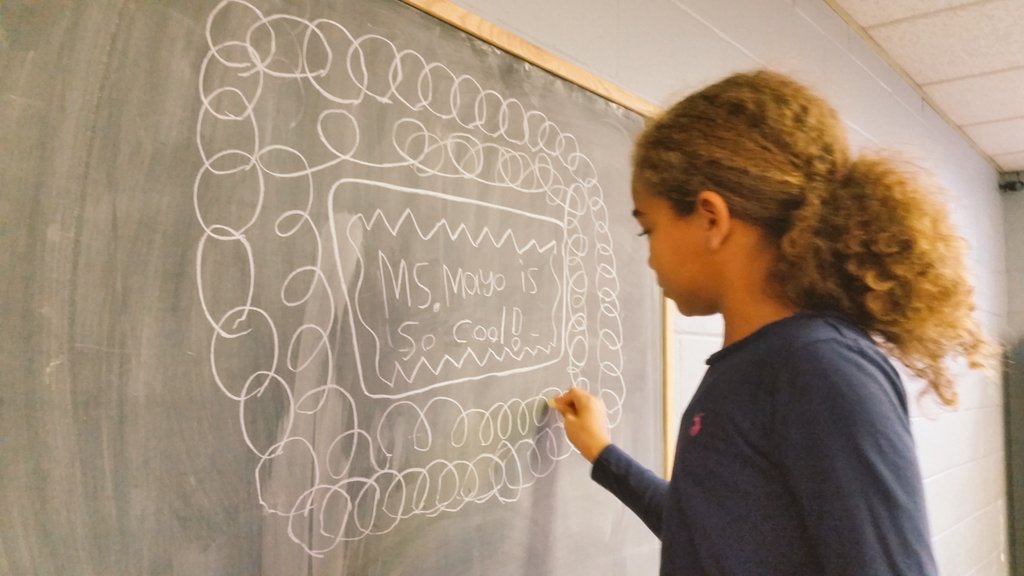 MS. Mayo is
So Cool!